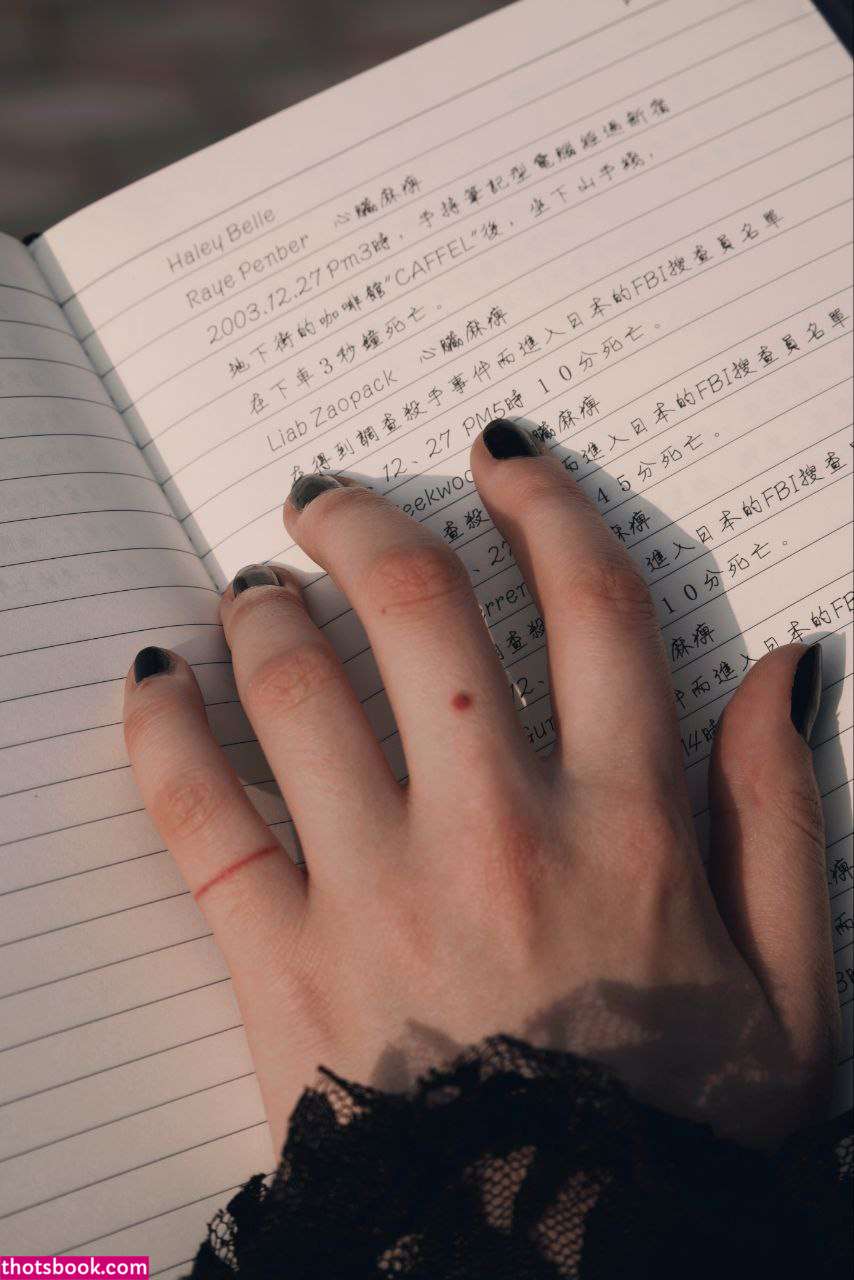 Haley Belle
Raye Penber 心臟麻痺
2003.12.27 Pm3時,手持筆記型電腦經過新宿
地下街的咖啡館"CAFFEL"後,坐下山手線,
在下車3秒鐘死亡。
Liab Zaopack 心臟麻痺
在得到調查殺手事件而進入日本的FBI搜查員名單
12、27 PM5時10分死亡。
eekwoo 臟麻痺
查殺 而進入日本的FBI搜查員名單
、27 45分死亡。
rren 麻痺
調查殺 進入日本的FBI搜查員
12、 10分死亡。
Gun 麻痺
件而進入日本的FB
14時
痺
而
thotsbook.com